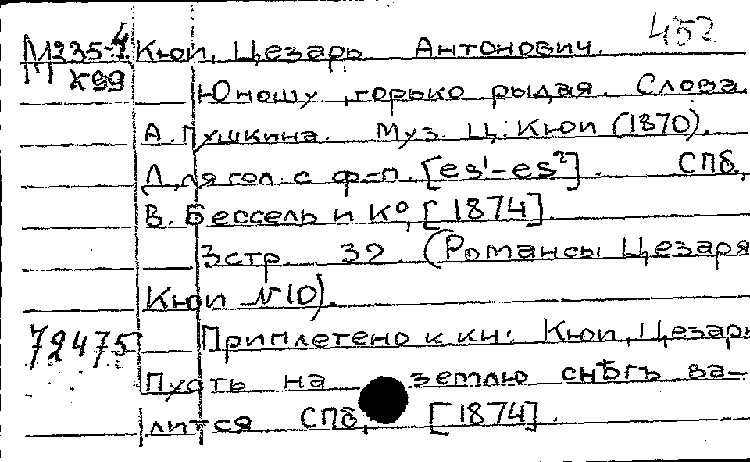 М235-4 Кюи, Цезарь Антонович. 452
К99 Юношу, горько рыдая. Слова
А. Пушкина. Муз. Ц. Кюи (1870).
Для гол. с ф-п. [es¹-es²]. СПб,
В. Бессель и К°, [1874].
3 стр. 32. (Романсы Цезаря
Кюи №10).
72475 Приплетено к кн: Кюи, Цезарь
Пусть на землю снѣгъ ва-
лится. СПб, [1874].